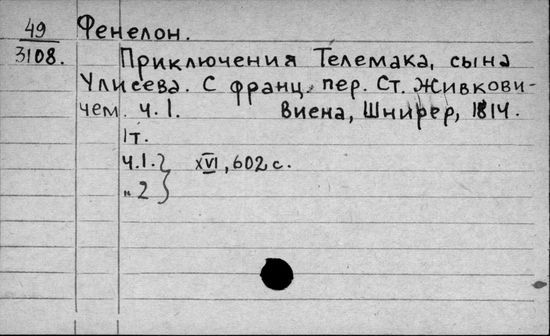 49 Фенелон.
3108. Приключения Телемака, сына
Улисеева. С франц. пер. Ст. Живкови-
чем. ч. I. Виена, Шнирер, 1814.
1т.
ч. I. } XVI, 602 с.
" 2 }